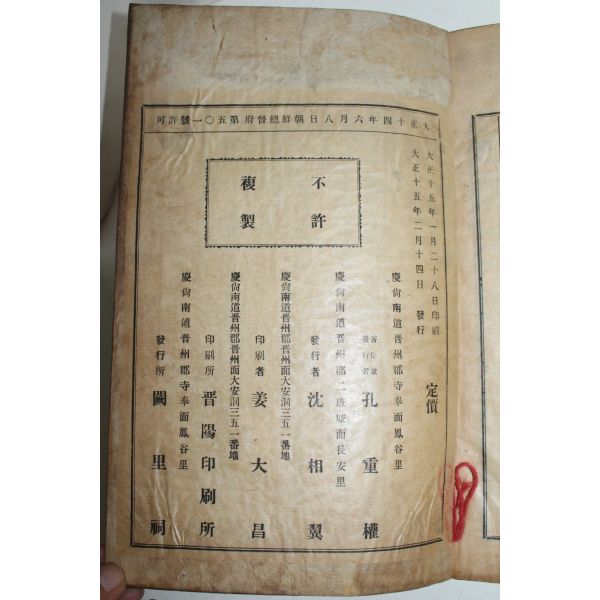 大正十四年六月八日朝鮮總督府第五〇一號許可
大正十五年一月二十八日印刷
大正十五年二月十四日 發行
不許
複製
定價
慶尙南道晋州郡寺奉面鳳谷里
發行者 孔重權
慶尙南道晋州郡二班城面長安里
發行者 沈相翼
慶尙南道晋州郡晋州面大安洞三五一番地
印刷者 姜大昌
慶尙南道晋州郡晋州面大安洞三五一番地
印刷所 晋陽印刷所
慶尙南道晋州郡寺奉面鳳谷里
發行所 闕里祠